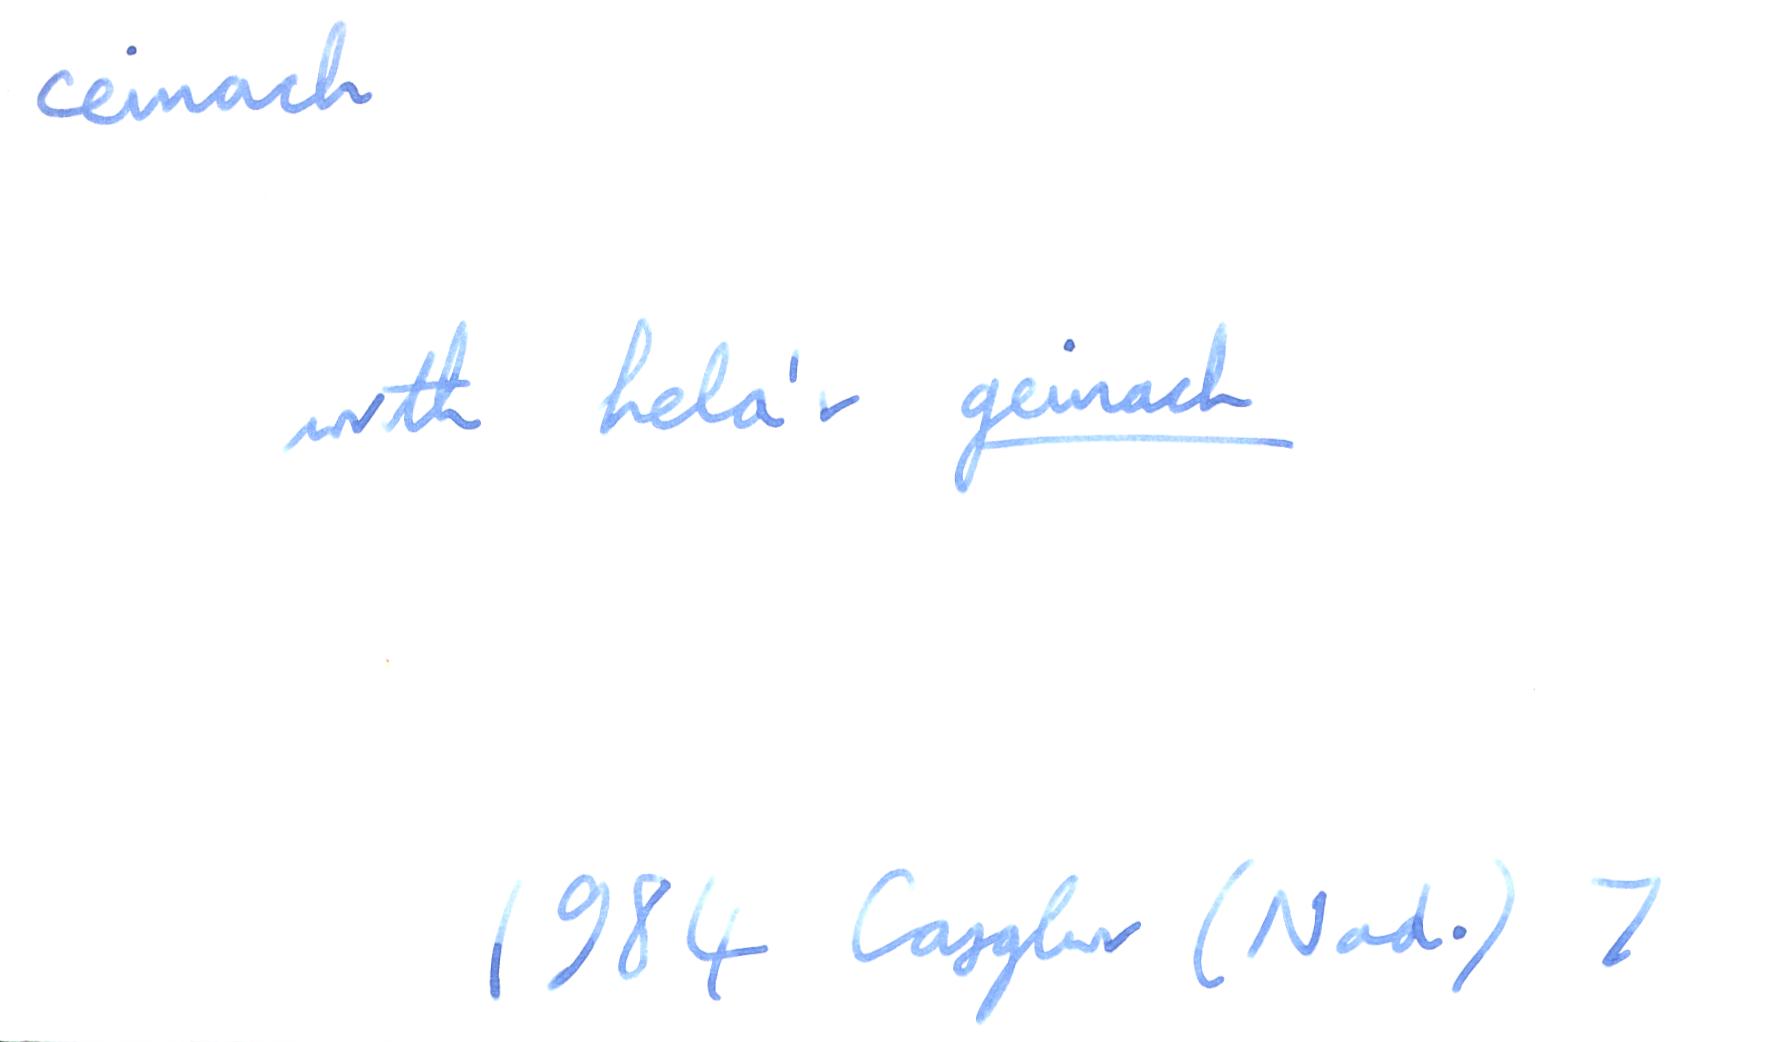 ceinach
wrth hela'r geinach
1984 Casglwr (Nad.) 7